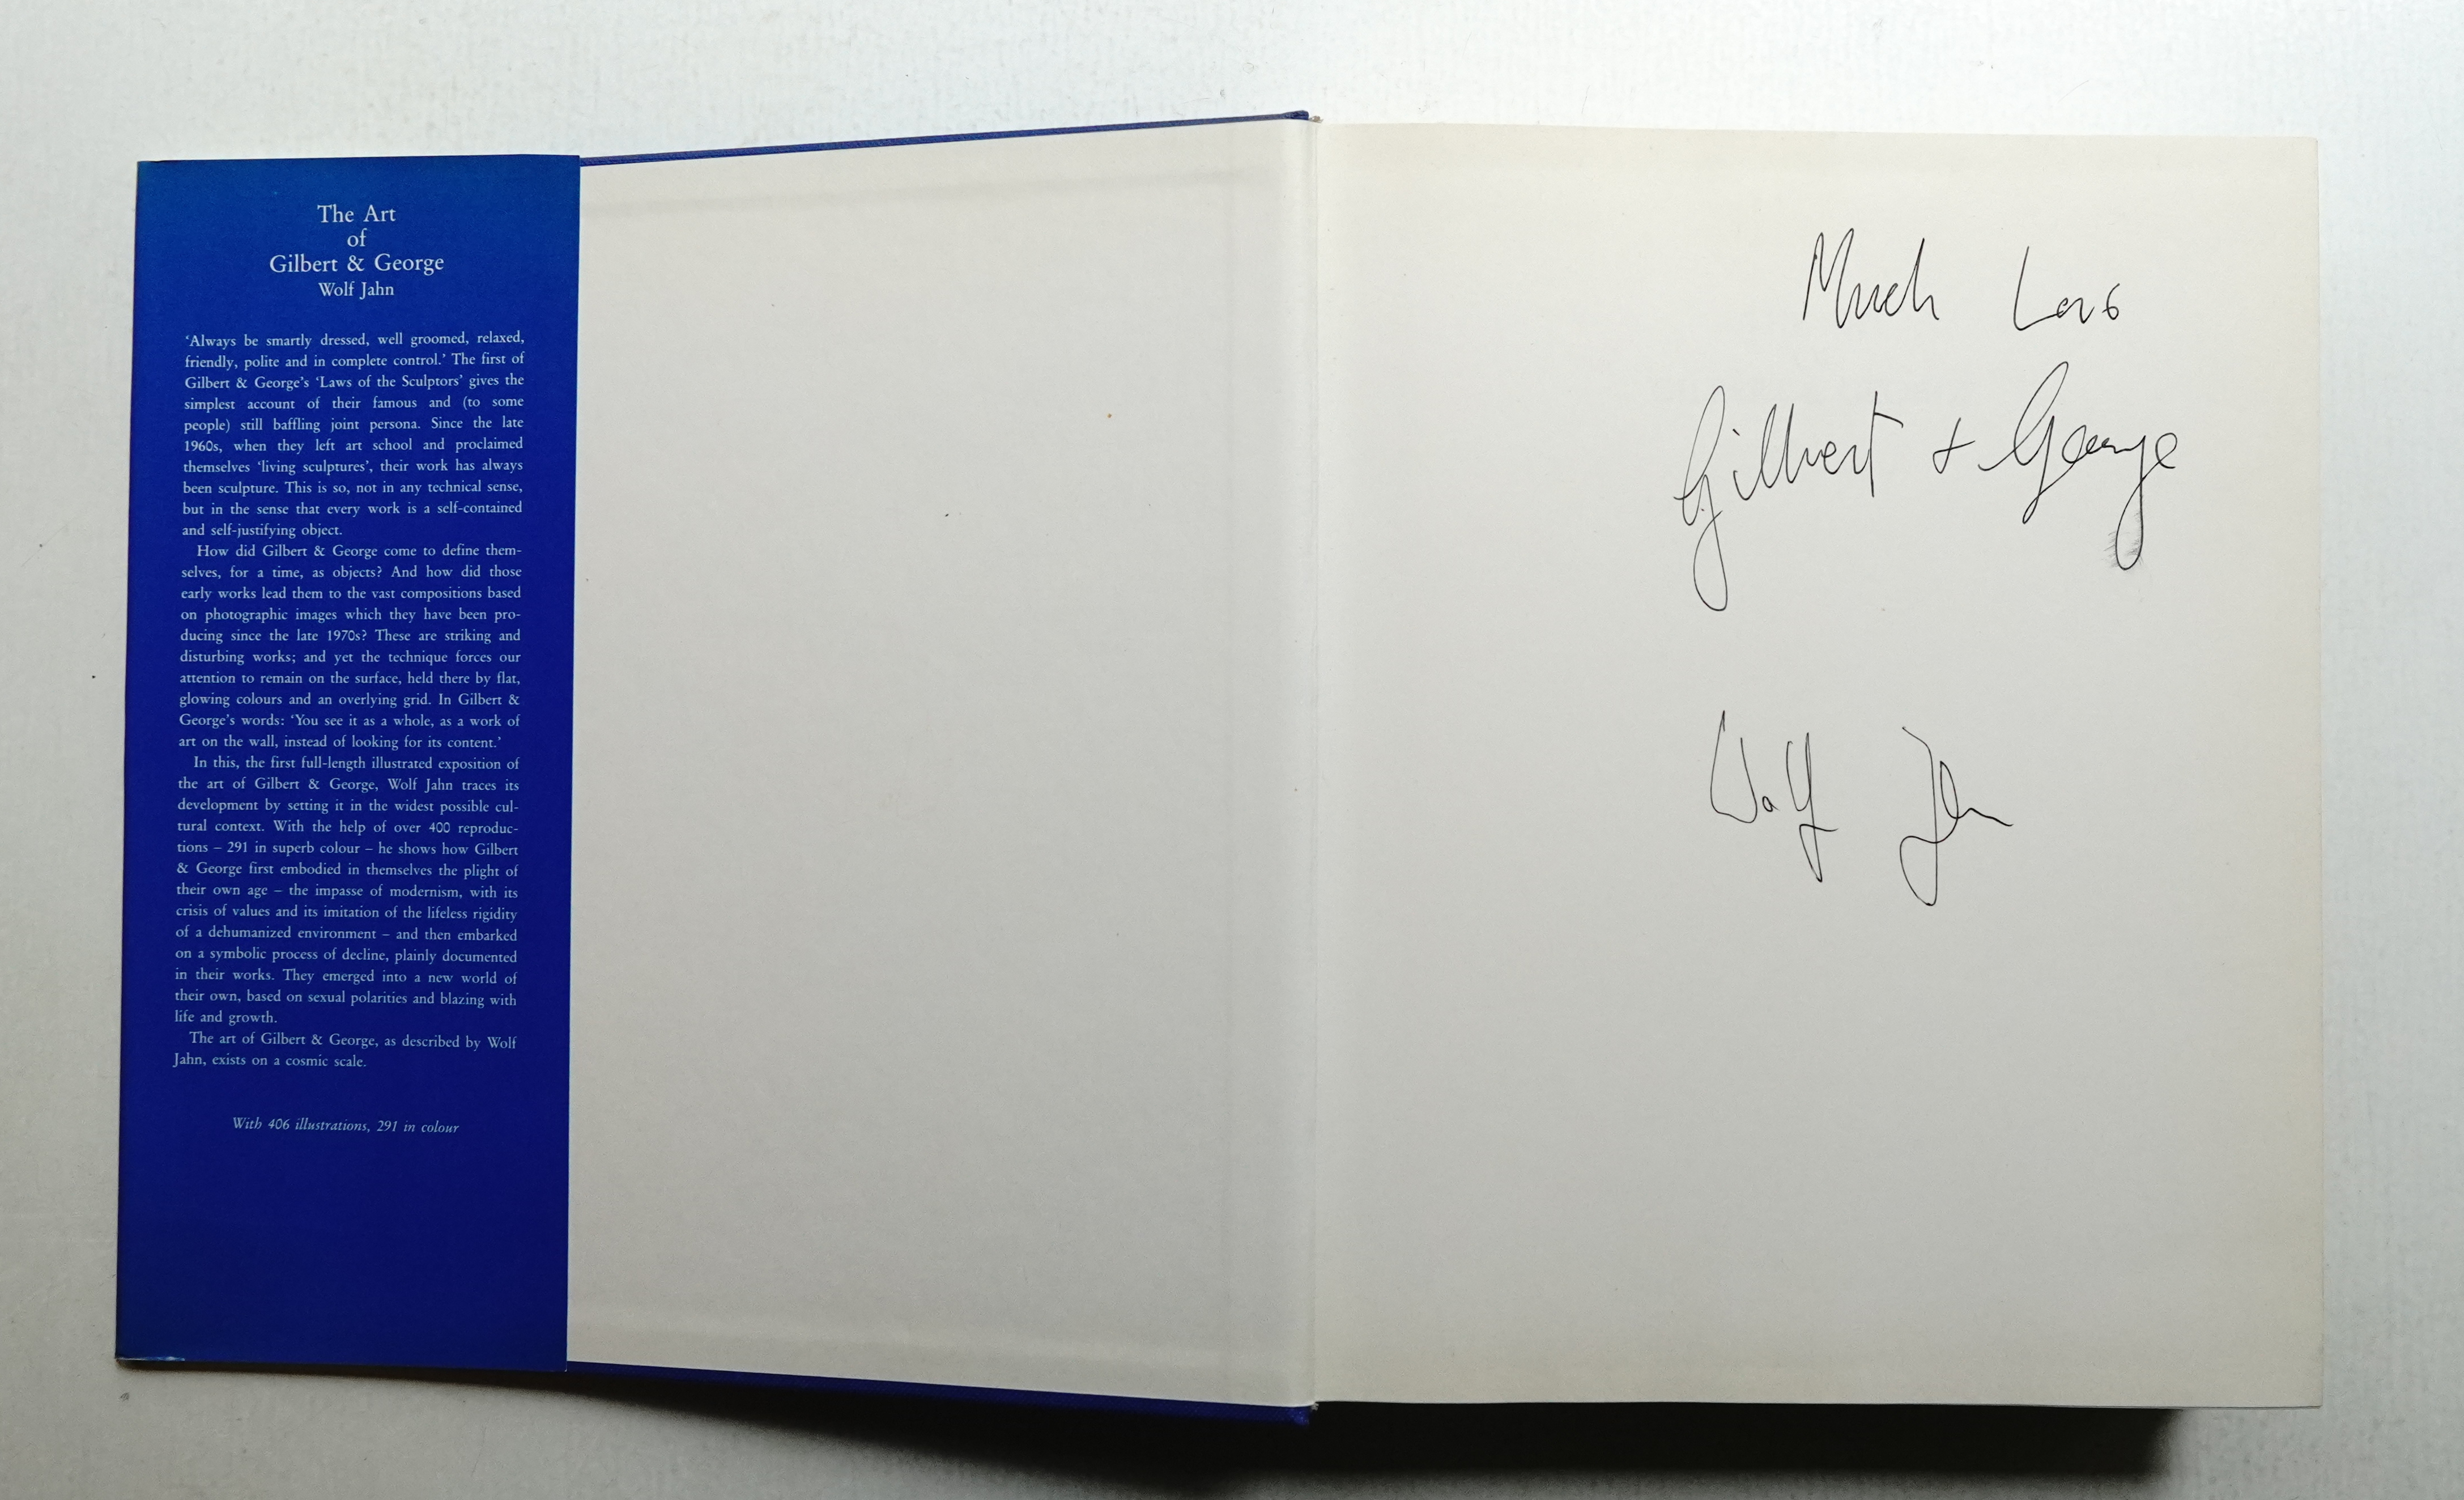 The Art
of
Gilbert & George
Wolf Jahn
‘Always be smartly dressed, well groomed, relaxed,
friendly, polite and in complete control.’ The first of
Gilbert & George’s ‘Laws of the Sculptors’ gives the
simplest account of their famous and (to some
people) still baffling joint persona. Since the late
1960s, when they left art school and proclaimed
themselves ‘living sculptures’, their work has always
been sculpture. This is so, not in any technical sense,
but in the sense that every work is a self-contained
and self-justifying object.
How did Gilbert & George come to define them-
selves, for a time, as objects? And how did those
early works lead them to the vast compositions based
on photographic images which they have been pro-
ducing since the late 1970s? These are striking and
disturbing works; and yet the technique forces our
attention to remain on the surface, held there by flat,
glowing colours and an overlying grid. In Gilbert &
George’s words: ‘You see it as a whole, as a work of
art on the wall, instead of looking for its content.’
In this, the first full-length illustrated exposition of
the art of Gilbert & George, Wolf Jahn traces its
development by setting it in the widest possible cul-
tural context. With the help of over 400 reproduc-
tions – 291 in superb colour – he shows how Gilbert
& George first embodied in themselves the plight of
their own age – the impasse of modernism, with its
crisis of values and its imitation of the lifeless rigidity
of a dehumanized environment – and then embarked
on a symbolic process of decline, plainly documented
in their works. They emerged into a new world of
their own, based on sexual polarities and blazing with
life and growth.
The art of Gilbert & George, as described by Wolf
Jahn, exists on a cosmic scale.
With 406 illustrations, 291 in colour
Much Love
Gilbert + George
Wolf Jahn